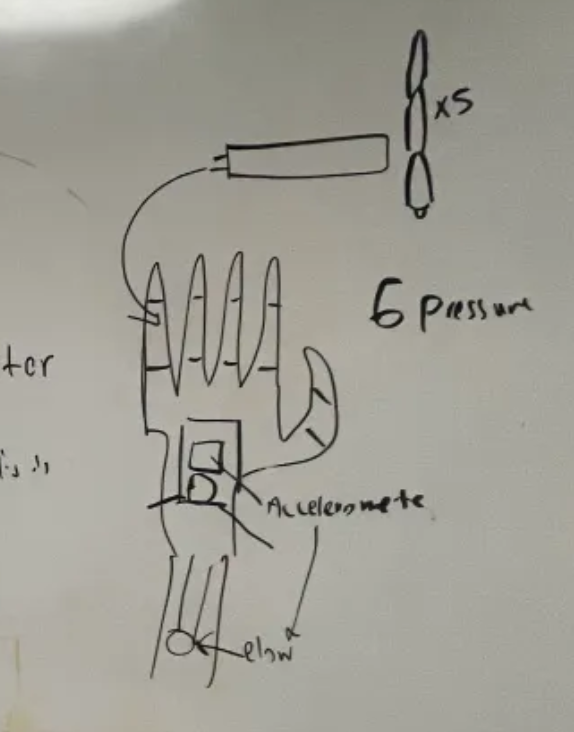 x5
6 pressure
tor
Acceleromete
elow